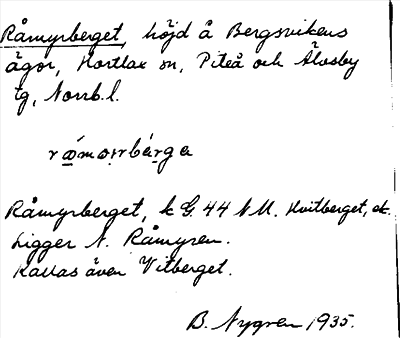 Råmyrberget, höjd å Bergsvikens
ägor, Hortlax sn, Piteå och Älvsby
tg, Norrb.l.
Råmyrberget, k G. 44 N M. Hvitberget, ek.
Ligger N. Råmyren.
Kallas även Vitberget.
B. Nygren 1935.